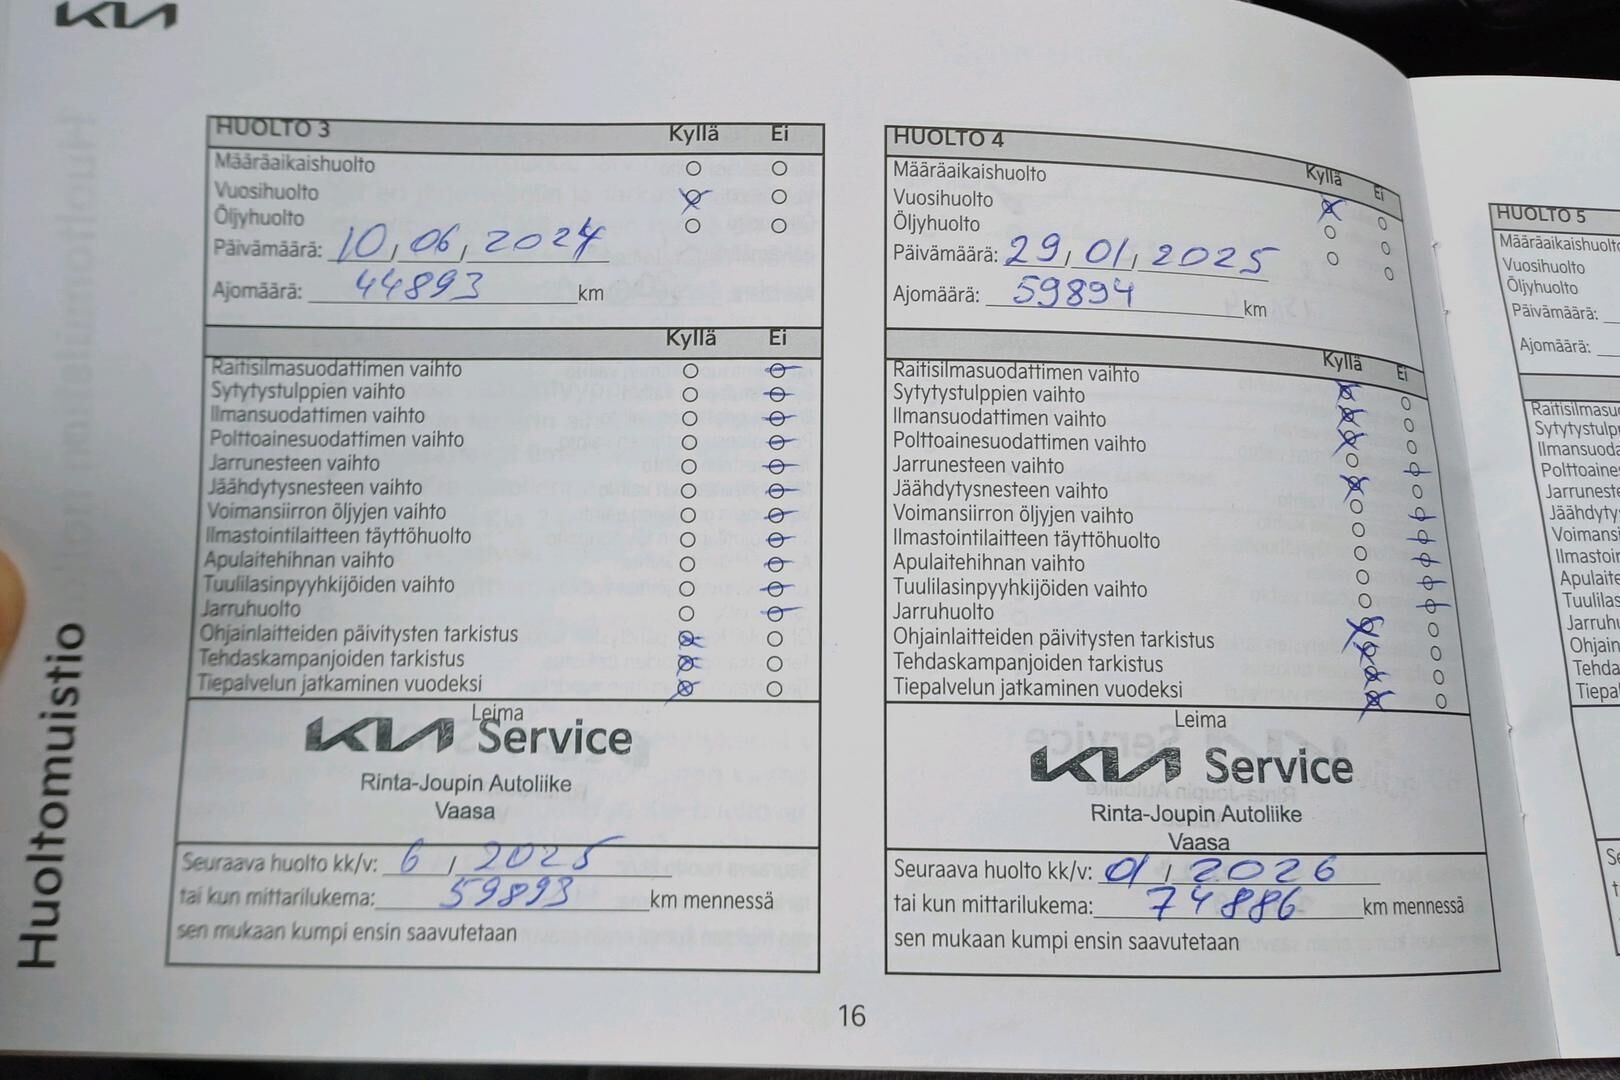 KIA
Huoltomuistio
HUOLTO 3 Kyllä Ei
Määräaikaishuolto
Vuosihuolto
Öljyhuolto
Päivämäärä: 10, 06, 2024
Ajomäärä: 44893 km
Kyllä Ei
Raitisilmasuodattimen vaihto
Sytytystulppien vaihto
Ilmansuodattimen vaihto
Polttoainesuodattimen vaihto
Jarrunesteen vaihto
Jäähdytysnesteen vaihto
Voimansiirron öljyjen vaihto
Ilmastointilaitteen täyttöhuolto
Apulaitehihnan vaihto
Tuulilasinpyyhkijöiden vaihto
Jarruhuolto
Ohjainlaitteiden päivitysten tarkistus
Tehdaskampanjoiden tarkistus
Tiepalvelun jatkaminen vuodeksi
Leima
KIA Service
Rinta-Joupin Autoliike
Vaasa
Seuraava huolto kk/v: 6 / 2025
tai kun mittarilukema: 59893 km mennessä
sen mukaan kumpi ensin saavutetaan
HUOLTO 4 Kyllä Ei
Määräaikaishuolto
Vuosihuolto
Öljyhuolto
Päivämäärä: 29, 01, 2025
Ajomäärä: 59894 km
Kyllä Ei
Raitisilmasuodattimen vaihto
Sytytystulppien vaihto
Ilmansuodattimen vaihto
Polttoainesuodattimen vaihto
Jarrunesteen vaihto
Jäähdytysnesteen vaihto
Voimansiirron öljyjen vaihto
Ilmastointilaitteen täyttöhuolto
Apulaitehihnan vaihto
Tuulilasinpyyhkijöiden vaihto
Jarruhuolto
Ohjainlaitteiden päivitysten tarkistus
Tehdaskampanjoiden tarkistus
Tiepalvelun jatkaminen vuodeksi
Leima
KIA Service
Rinta-Joupin Autoliike
Vaasa
Seuraava huolto kk/v: 01 / 2026
tai kun mittarilukema: 74886 km mennessä
sen mukaan kumpi ensin saavutetaan
16
HUOLTO 5
Määräaikaishuolto
Vuosihuolto
Öljyhuolto
Päivämäärä:
Ajomäärä: